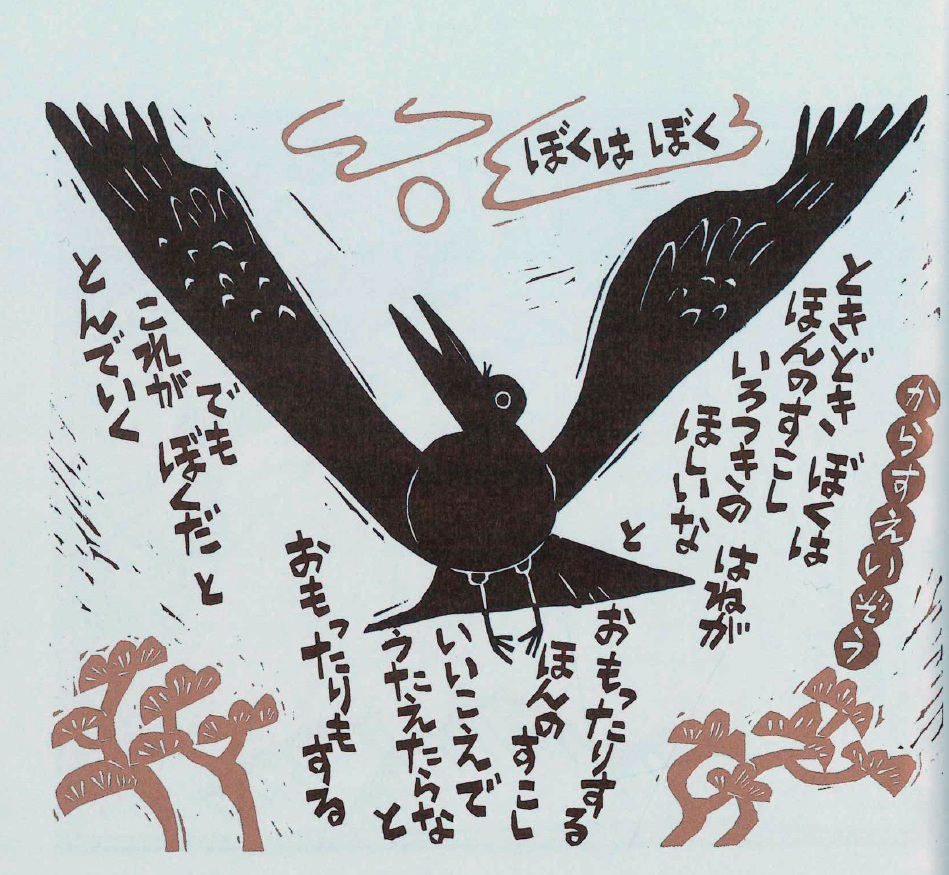 ぼくは ぼく
からすえいぞう
ときどき ぼくは
ほんのすこし
いろつきの はねが
ほしいな
と
おもったりする
ほんの すこし
いいこえで
うたえたらな と
おもったりも する
でも
これが ぼくだ と
とんでいく